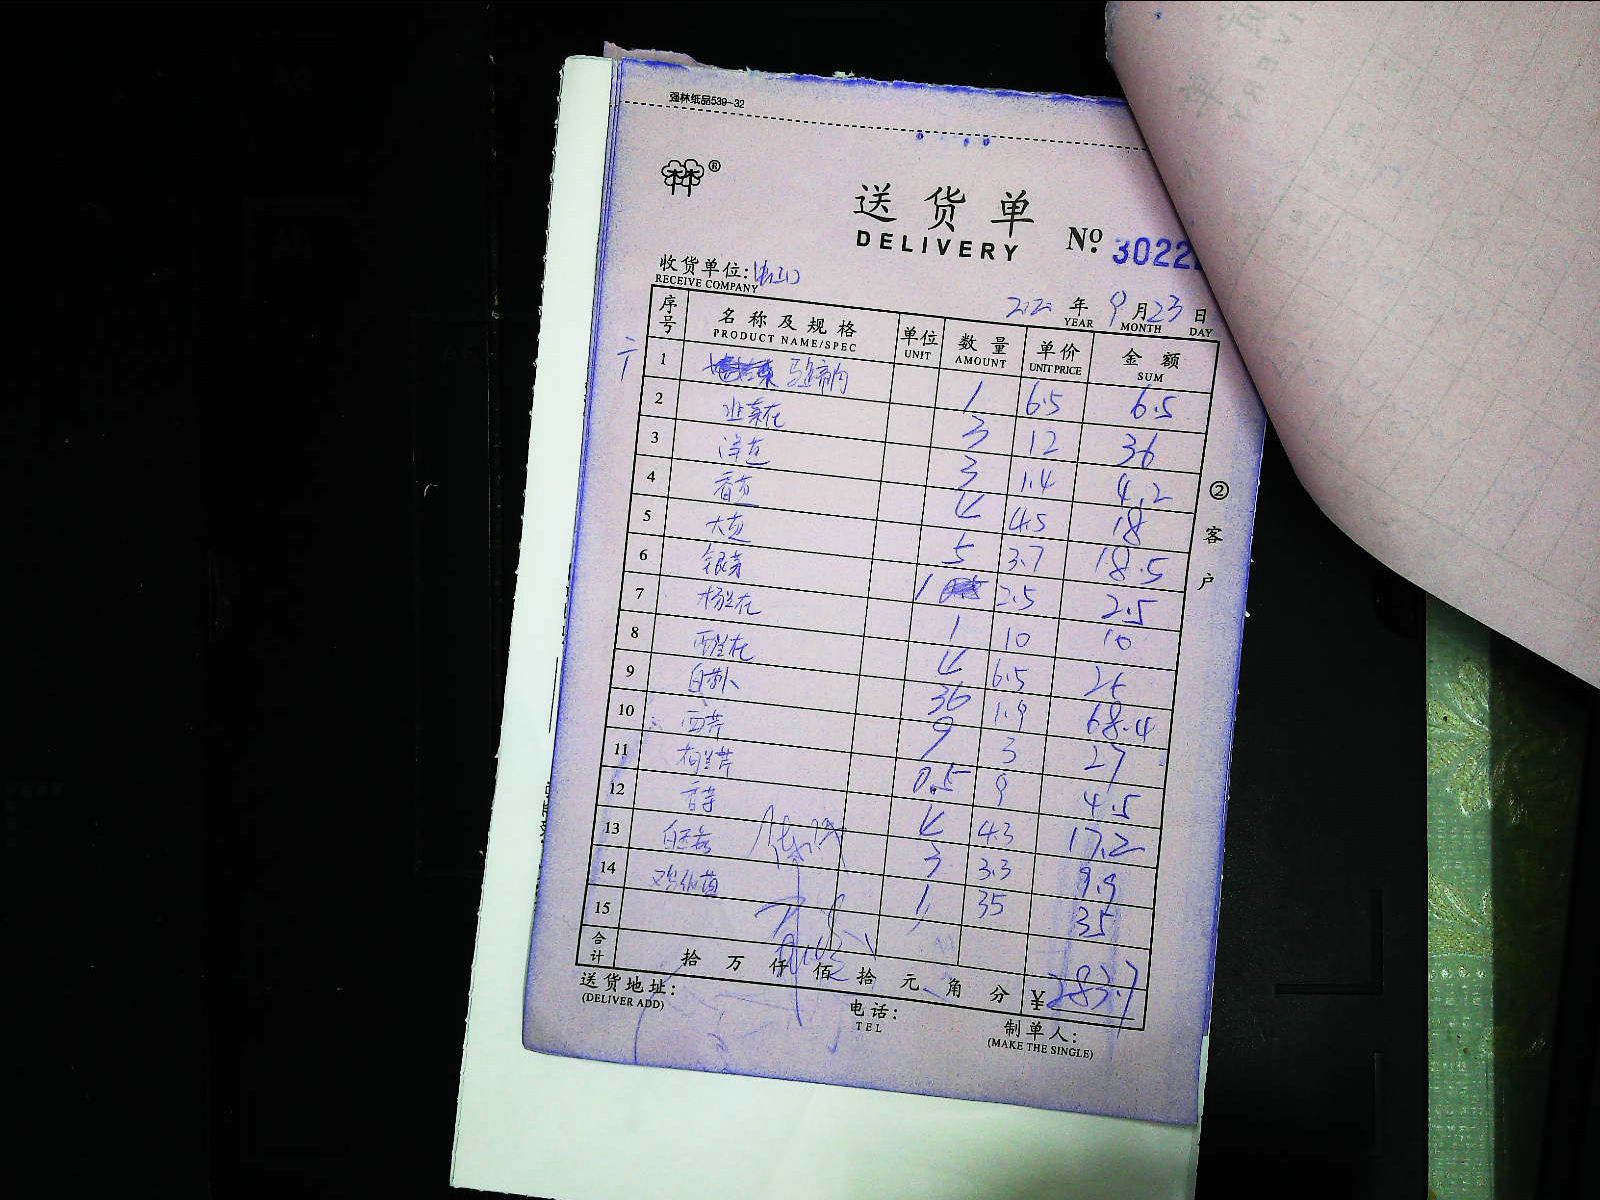 强林纸品539-32
®
送货单
DELIVERY
No. 3022
收货单位:
RECEIVE COMPANY
2020 年 9 月 23 日
YEAR MONTH DAY
序号 名称及规格 单位 数量 单价 金额
PRODUCT NAME/SPEC UNIT AMOUNT UNIT PRICE SUM
1 1 6.5 6.5
2 韭菜花 3 12 36
3 洋葱 3 1.4 4.2
4 香葱 4 4.5 18
5 大葱 5 3.7 18.5
6 银芽 1 2.5 2.5
7 杨兰花 1 10 10
8 西兰花 4 6.5 26
9 白萝卜 36 1.9 68.4
10 西芹 9 3 27
11 荷兰芹 0.5 9 4.5
12 香芹 4 4.3 17.2
13 3 3.3 9.9
14 1 35 35
15
合计 拾 万 仟 佰 拾 元 角 分 ¥283.7
送货地址:
(DELIVER ADD)
电话:
TEL
制单人:
(MAKE THE SINGLE)
②客户